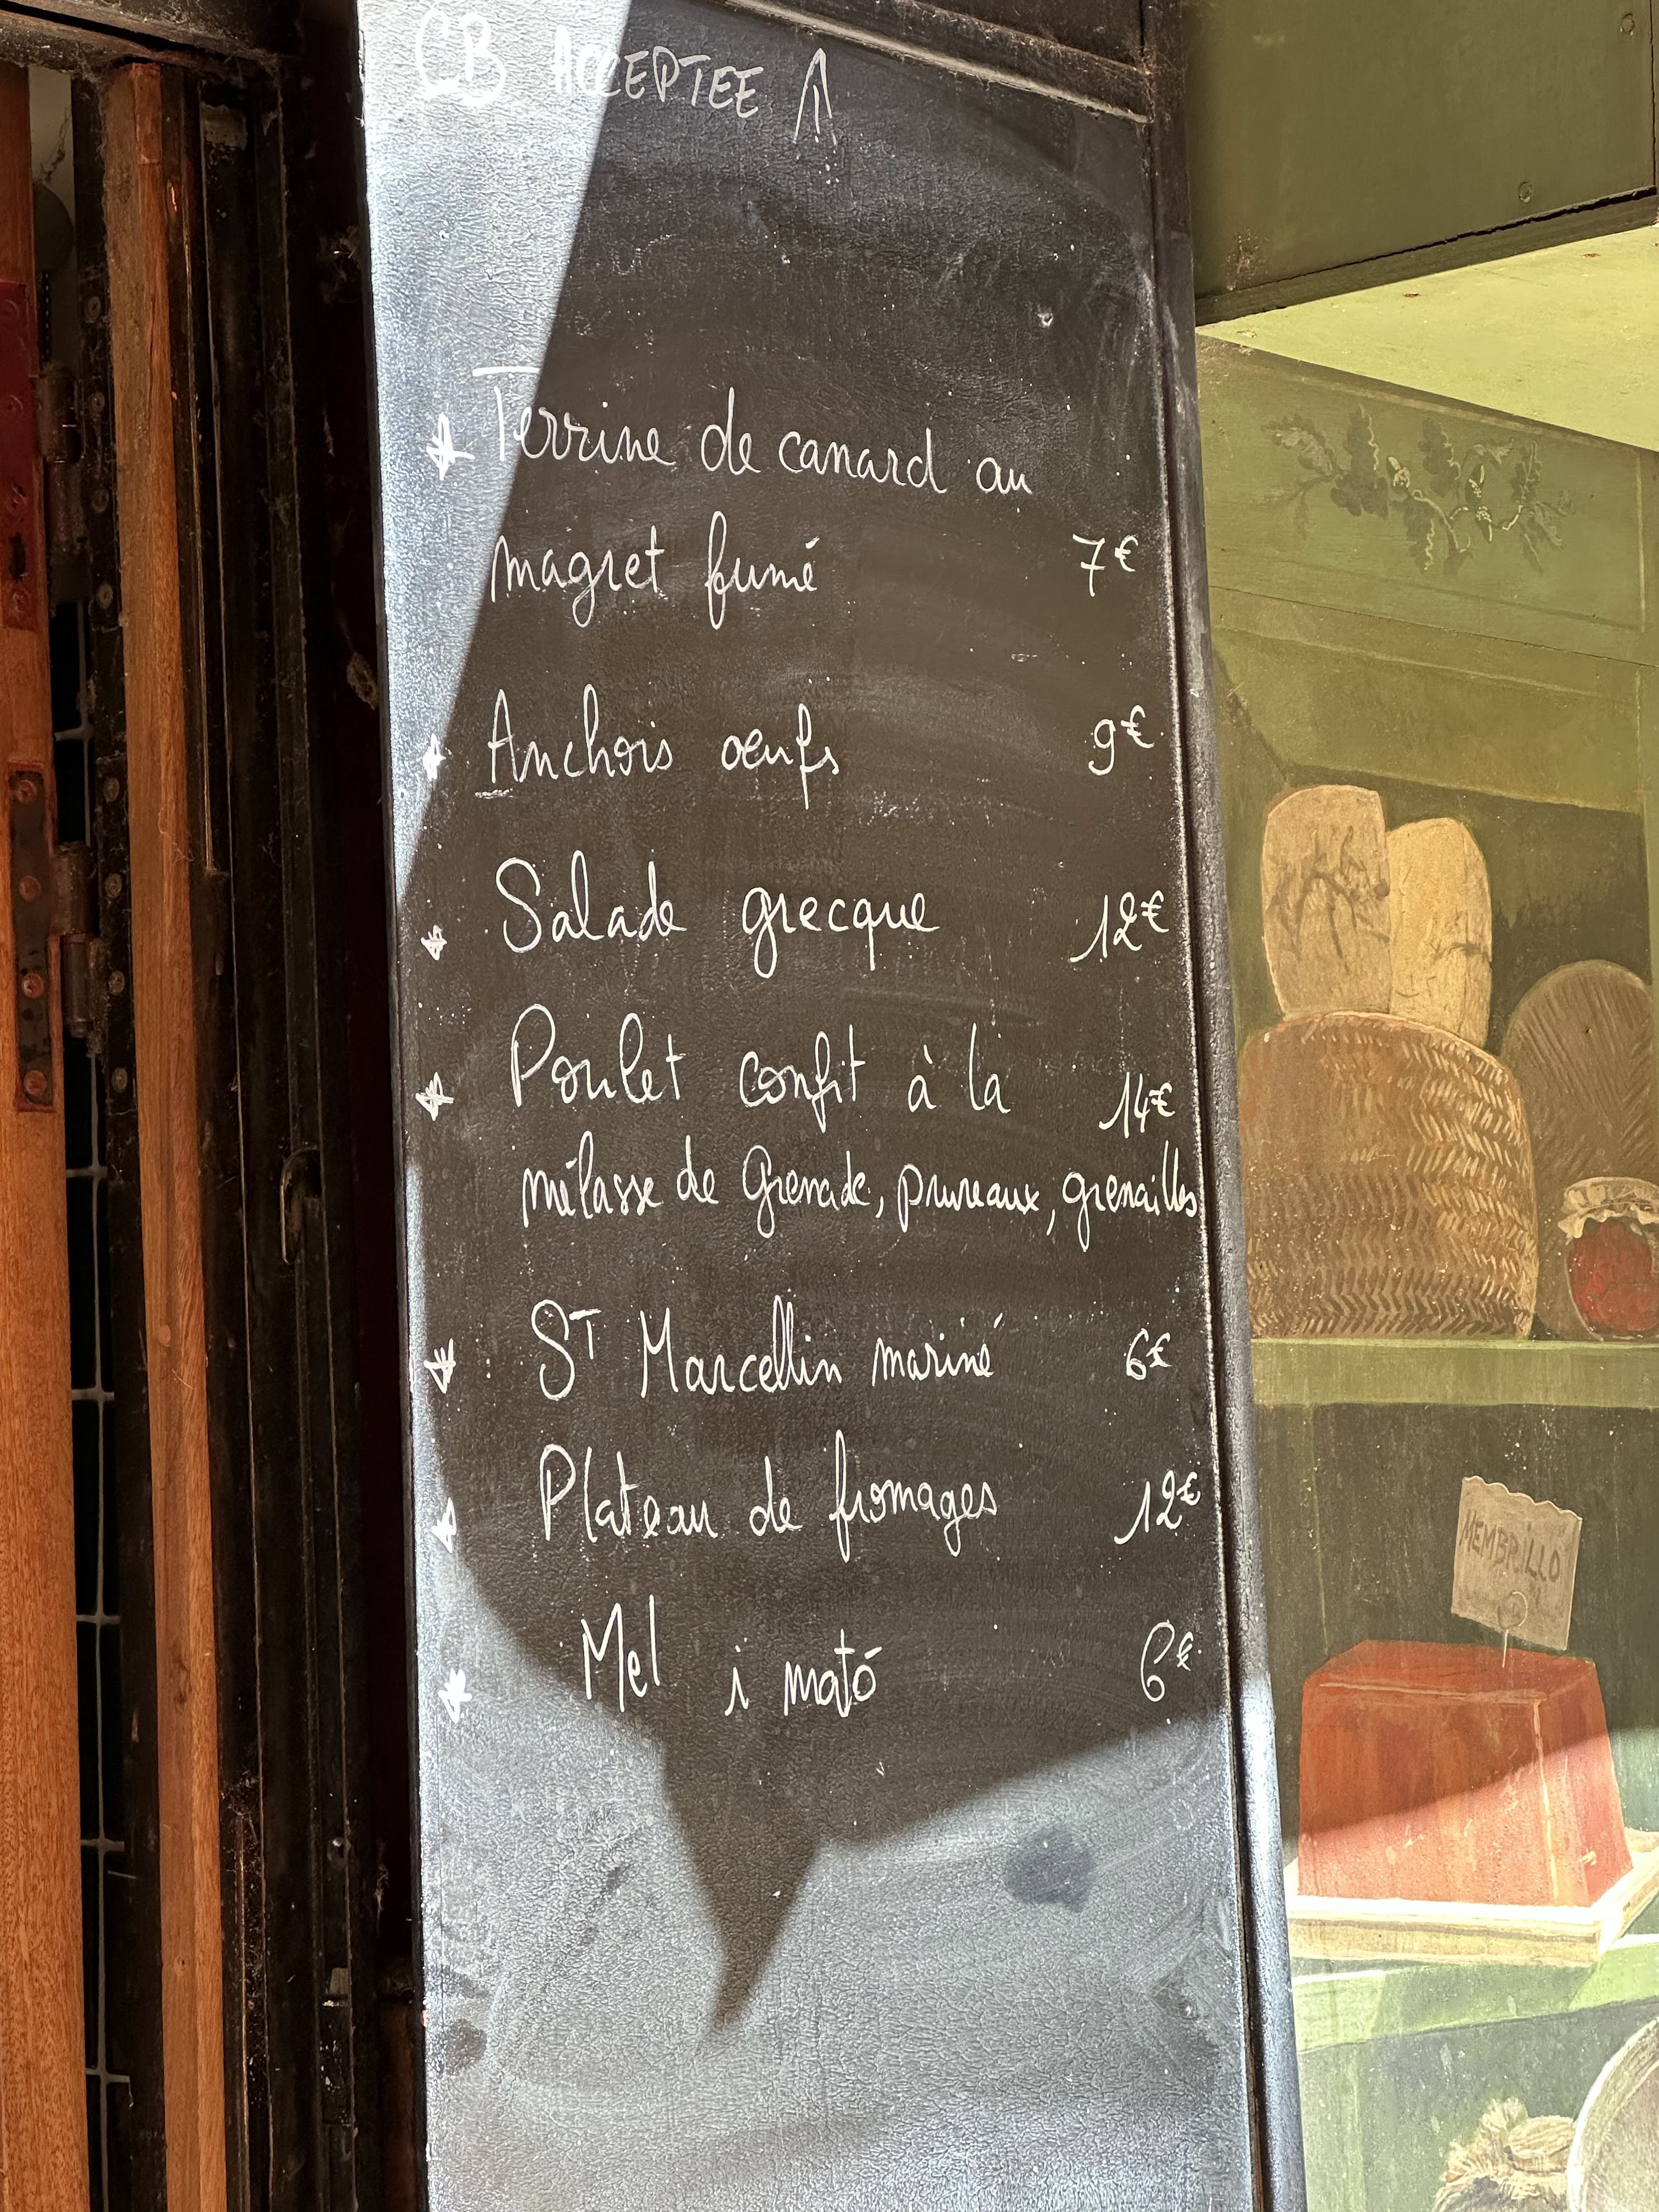 CB ACCEPTEE
Terrine de canard au
magret fumé 7€
Anchois oeufs 9€
Salade grecque 12€
Poulet confit à la 14€
mélasse de Grenade, pruneaux, grenailles
ST Marcellin mariné 6€
Plateau de fromages 12€
Mel i mató 6€
MEMBRILLO